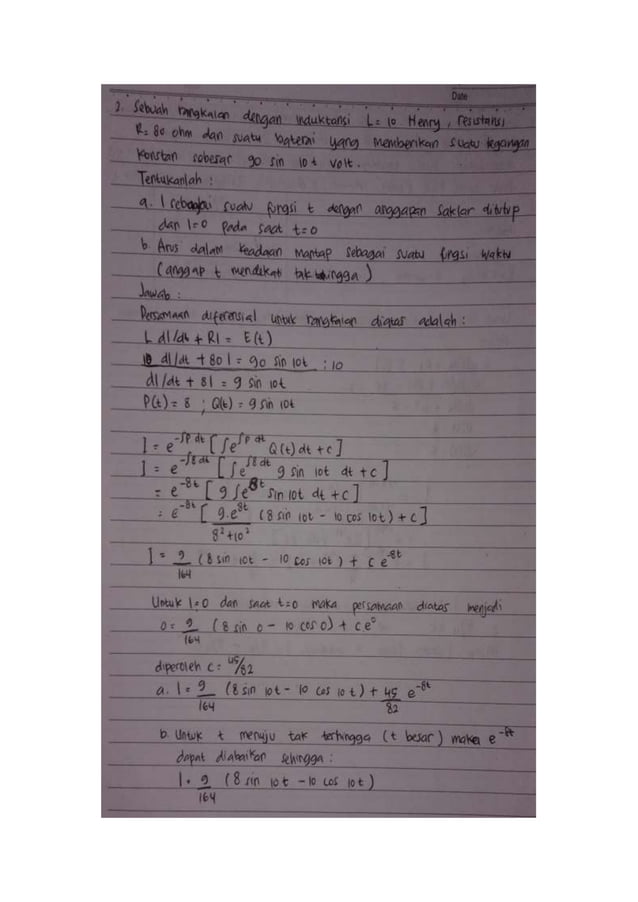 Date
2. Sebuah rangkaian dengan induktansi L = 10 Henry, resistansi
R = 80 ohm dan suatu baterai yang memberikan suatu tegangan
konstan sebesar 90 sin 10t volt.
Tentukanlah :
a. I sebagai suatu fungsi t dengan anggapan saklar ditutup
dan I=0 pada saat t=0
b. Arus dalam keadaan mantap sebagai suatu fungsi waktu
(anggap t mendekati tak hingga)
Jawab :
Persamaan diferensial untuk rangkaian diatas adalah :
L dI/dt + RI = E(t)
10 dI/dt + 80 I = 90 sin 10t : 10
dI/dt + 8I = 9 sin 10t
P(t) = 8 ; Q(t) = 9 sin 10t
I = e^{-∫P dt} [∫e^{∫P dt} Q(t) dt + c]
I = e^{-∫8 dt} [∫e^{∫8 dt} 9 sin 10t dt + c]
= e^{-8t} [9 ∫e^{8t} sin 10t dt + c]
= e^{-8t} [9.e^{8t}/(8²+10²) (8 sin 10t - 10 cos 10t) + c]
I = 9/164 (8 sin 10t - 10 cos 10t) + c e^{-8t}
Untuk I=0 dan saat t=0 maka persamaan diatas menjadi
0 = 9/164 (8 sin 0 - 10 cos 0) + c e⁰
diperoleh c = 45/82
a. I = 9/164 (8 sin 10t - 10 cos 10t) + 45/82 e^{-8t}
b. Untuk t menuju tak terhingga (t besar) maka e^{-8t}
dapat diabaikan sehingga :
I = 9/164 (8 sin 10t - 10 cos 10t)